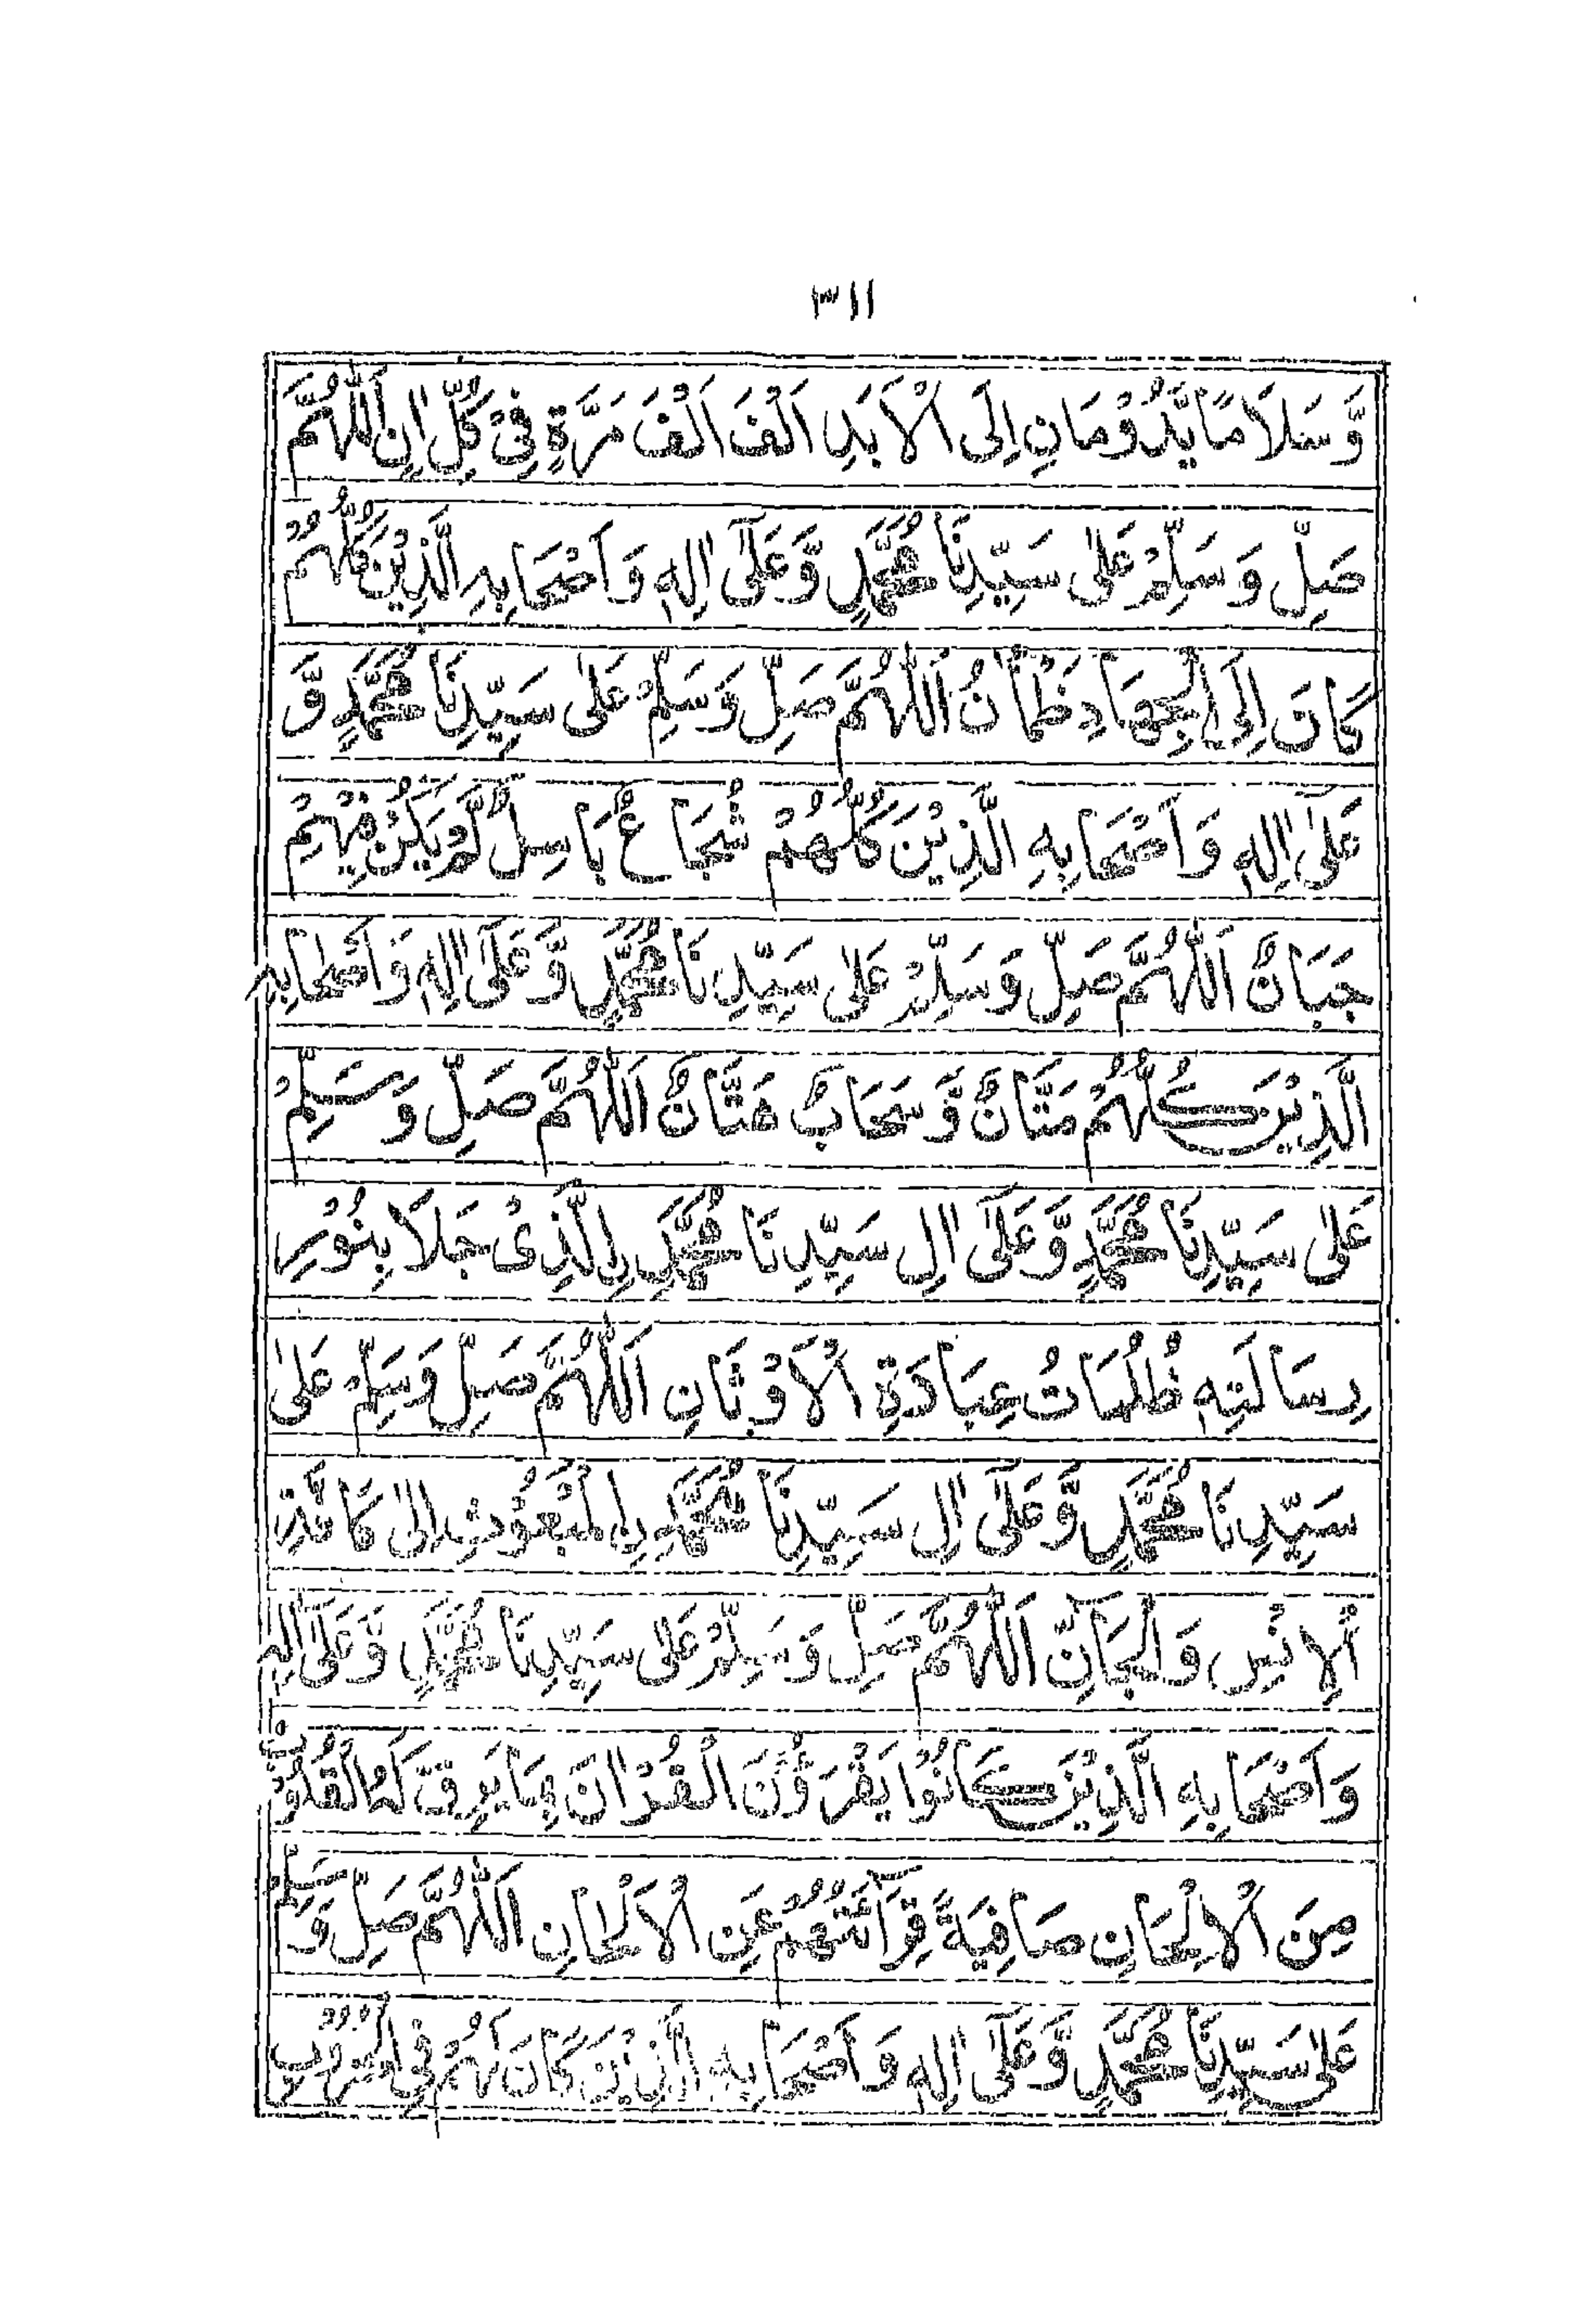 ٣١١
وَّسَلَامًا يَّدُوْمَانِ اِلَى الْاَبَدِ اَلْفَ اَلْفَ مَرَّةٍ فِيْ كُلِّ اٰنٍ اَللّٰهُمَّ
صَلِّ وَسَلِّمْ عَلٰى سَيِّدِنَا مُحَمَّدٍ وَّعَلٰٓى اٰلِهٖ وَاَصْحَابِهِ الَّذِيْنَ كُلُّهُمْ
كَانَ اِلَى الْجِهَادِ ظَمْاٰنُ اَللّٰهُمَّ صَلِّ وَسَلِّمْ عَلٰى سَيِّدِنَا مُحَمَّدٍ وَّ
عَلٰٓى اٰلِهٖ وَاَصْحَابِهِ الَّذِيْنَ كُلُّهُمْ شُجَاعٌ بَاسِلٌ لَّمْ يَكُنْ فِيْهِمْ
جَبَانٌ اَللّٰهُمَّ صَلِّ وَسَلِّمْ عَلٰى سَيِّدِنَا مُحَمَّدٍ وَّعَلٰٓى اٰلِهٖ وَاَصْحَابِهِ
الَّذِيْنَ كُلُّهُمْ مَنَّانٌ وَّسَحَابٌ هَتَّانٌ اَللّٰهُمَّ صَلِّ وَسَلِّمْ
عَلٰى سَيِّدِنَا مُحَمَّدٍ وَّعَلٰٓى اٰلِ سَيِّدِنَا مُحَمَّدِ ۣالَّذِىْ جَلَا بِنُوْرِ
رِسَالَتِهٖ ظُلُمَاتُ عِبَادَةِ الْاَوْثَانِ اَللّٰهُمَّ صَلِّ وَسَلِّمْ عَلٰى
سَيِّدِنَا مُحَمَّدٍ وَّعَلٰٓى اٰلِ سَيِّدِنَا مُحَمَّدِ ۣالْمَبْعُوْثِ اِلٰى كَافَّةِ
الْاِنْسِ وَالْجَآنِّ اَللّٰهُمَّ صَلِّ وَسَلِّمْ عَلٰى سَيِّدِنَا مُحَمَّدٍ وَّعَلٰٓى اٰلِهٖ
وَاَصْحَابِهِ الَّذِيْنَ كَانُوْا يَقْرَءُوْنَ الْقُرْاٰنَ بِمَا يَرِقُّ لَهُ الْقُلُوْبُ
مِنَ الْاَلْحَانِ صَافِيَةً قِرَآئَتُهُمْ عَنِ الْاَلْحَانِ اَللّٰهُمَّ صَلِّ وَسَلِّمْ
عَلٰى سَيِّدِنَا مُحَمَّدٍ وَّعَلٰٓى اٰلِهٖ وَاَصْحَابِهِ الَّذِيْنَ كَانَ لَهُمْ فِى الْحُرُوْبِ